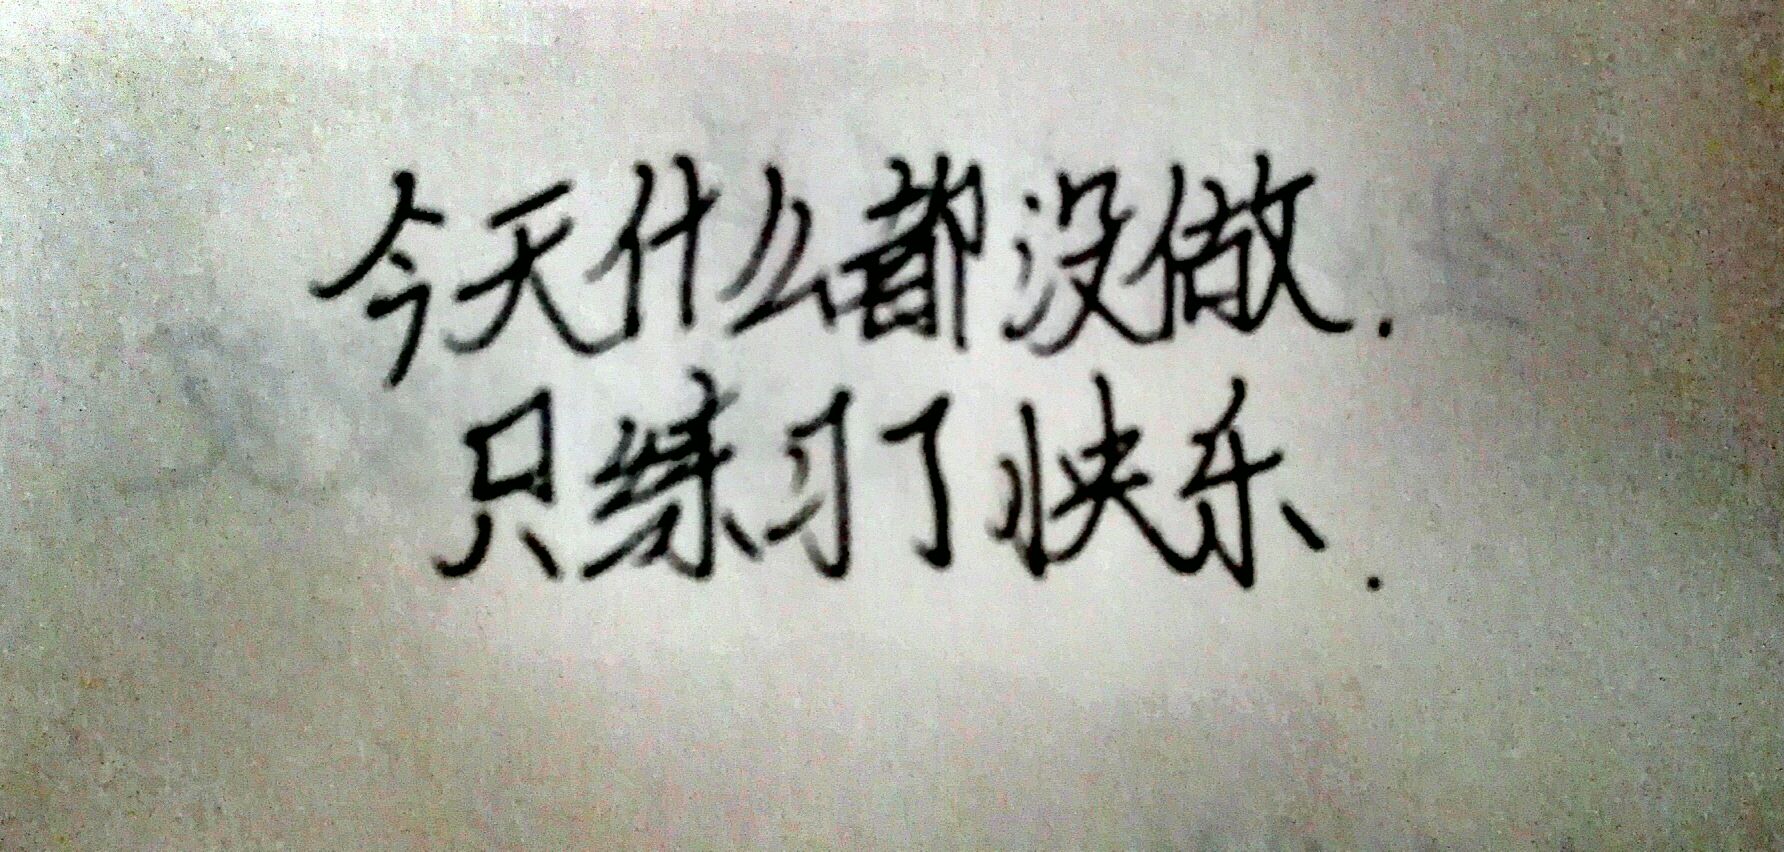 今天什么都没做.
只练习了快乐.